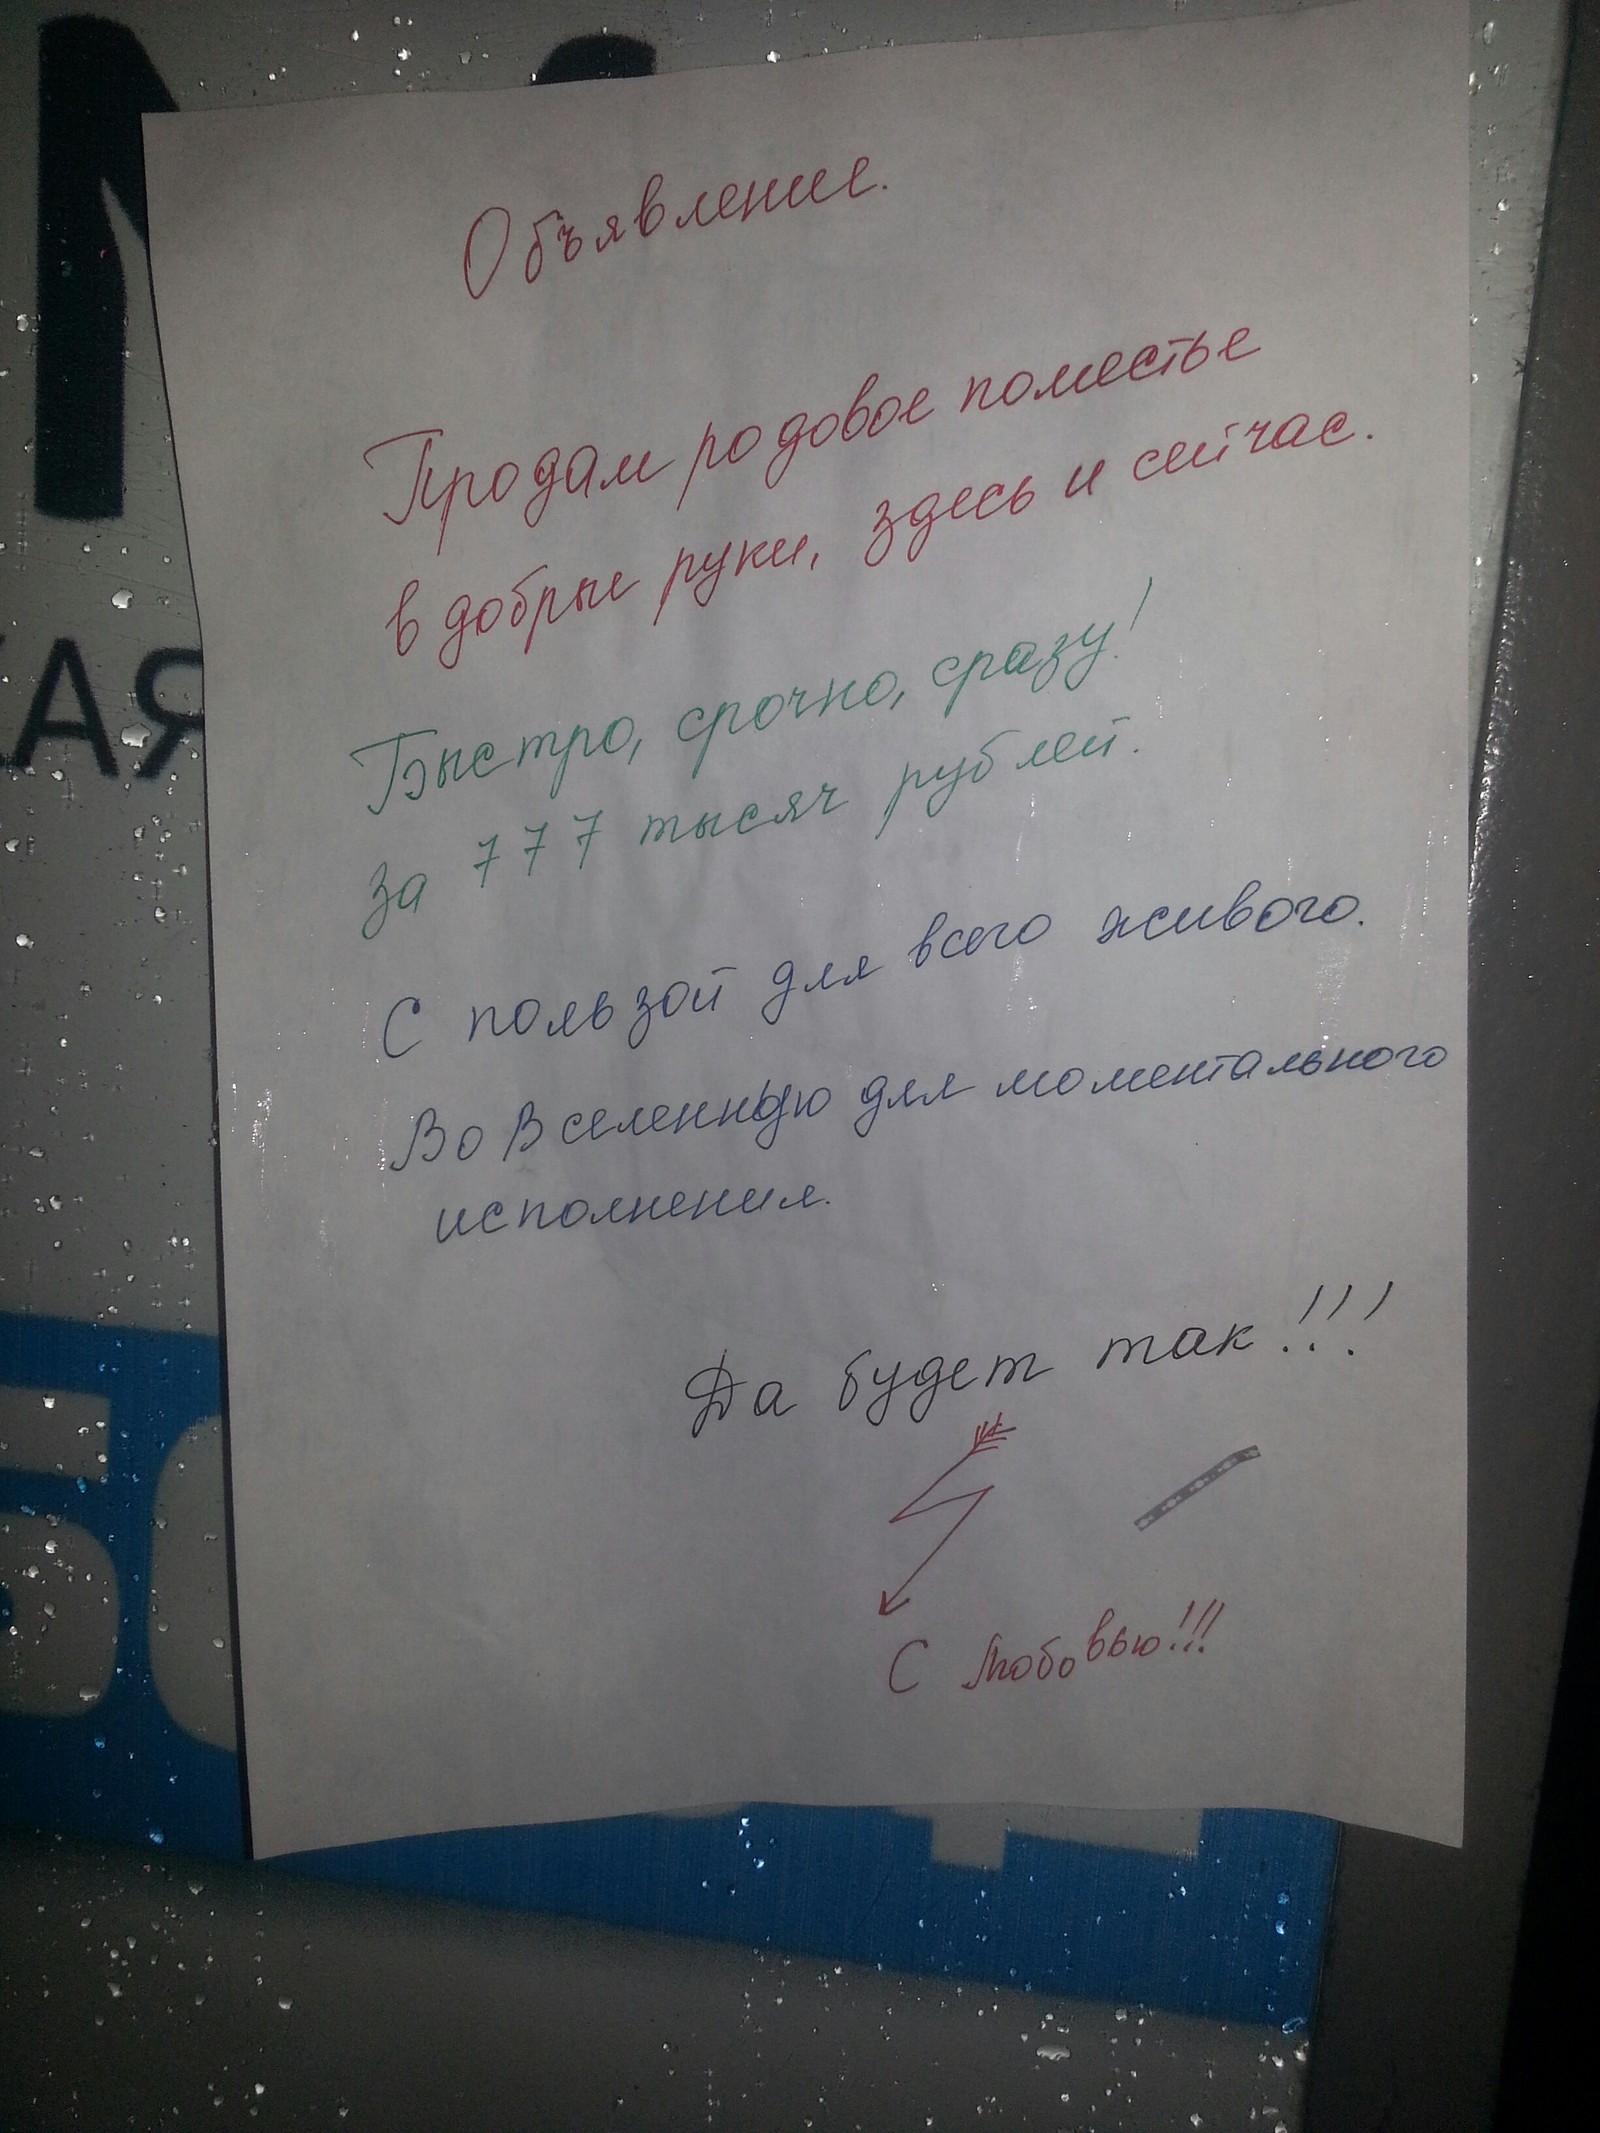 Объявление.
Продам родовое поместье
в добрые руки, здесь и сейчас.
Быстро, срочно, сразу!
за 777 тысяч рублей.
С пользой для всего живого.
Во Вселенную для моментального
исполнения.
Да будет так!!!
С Любовью!!!
АЯ